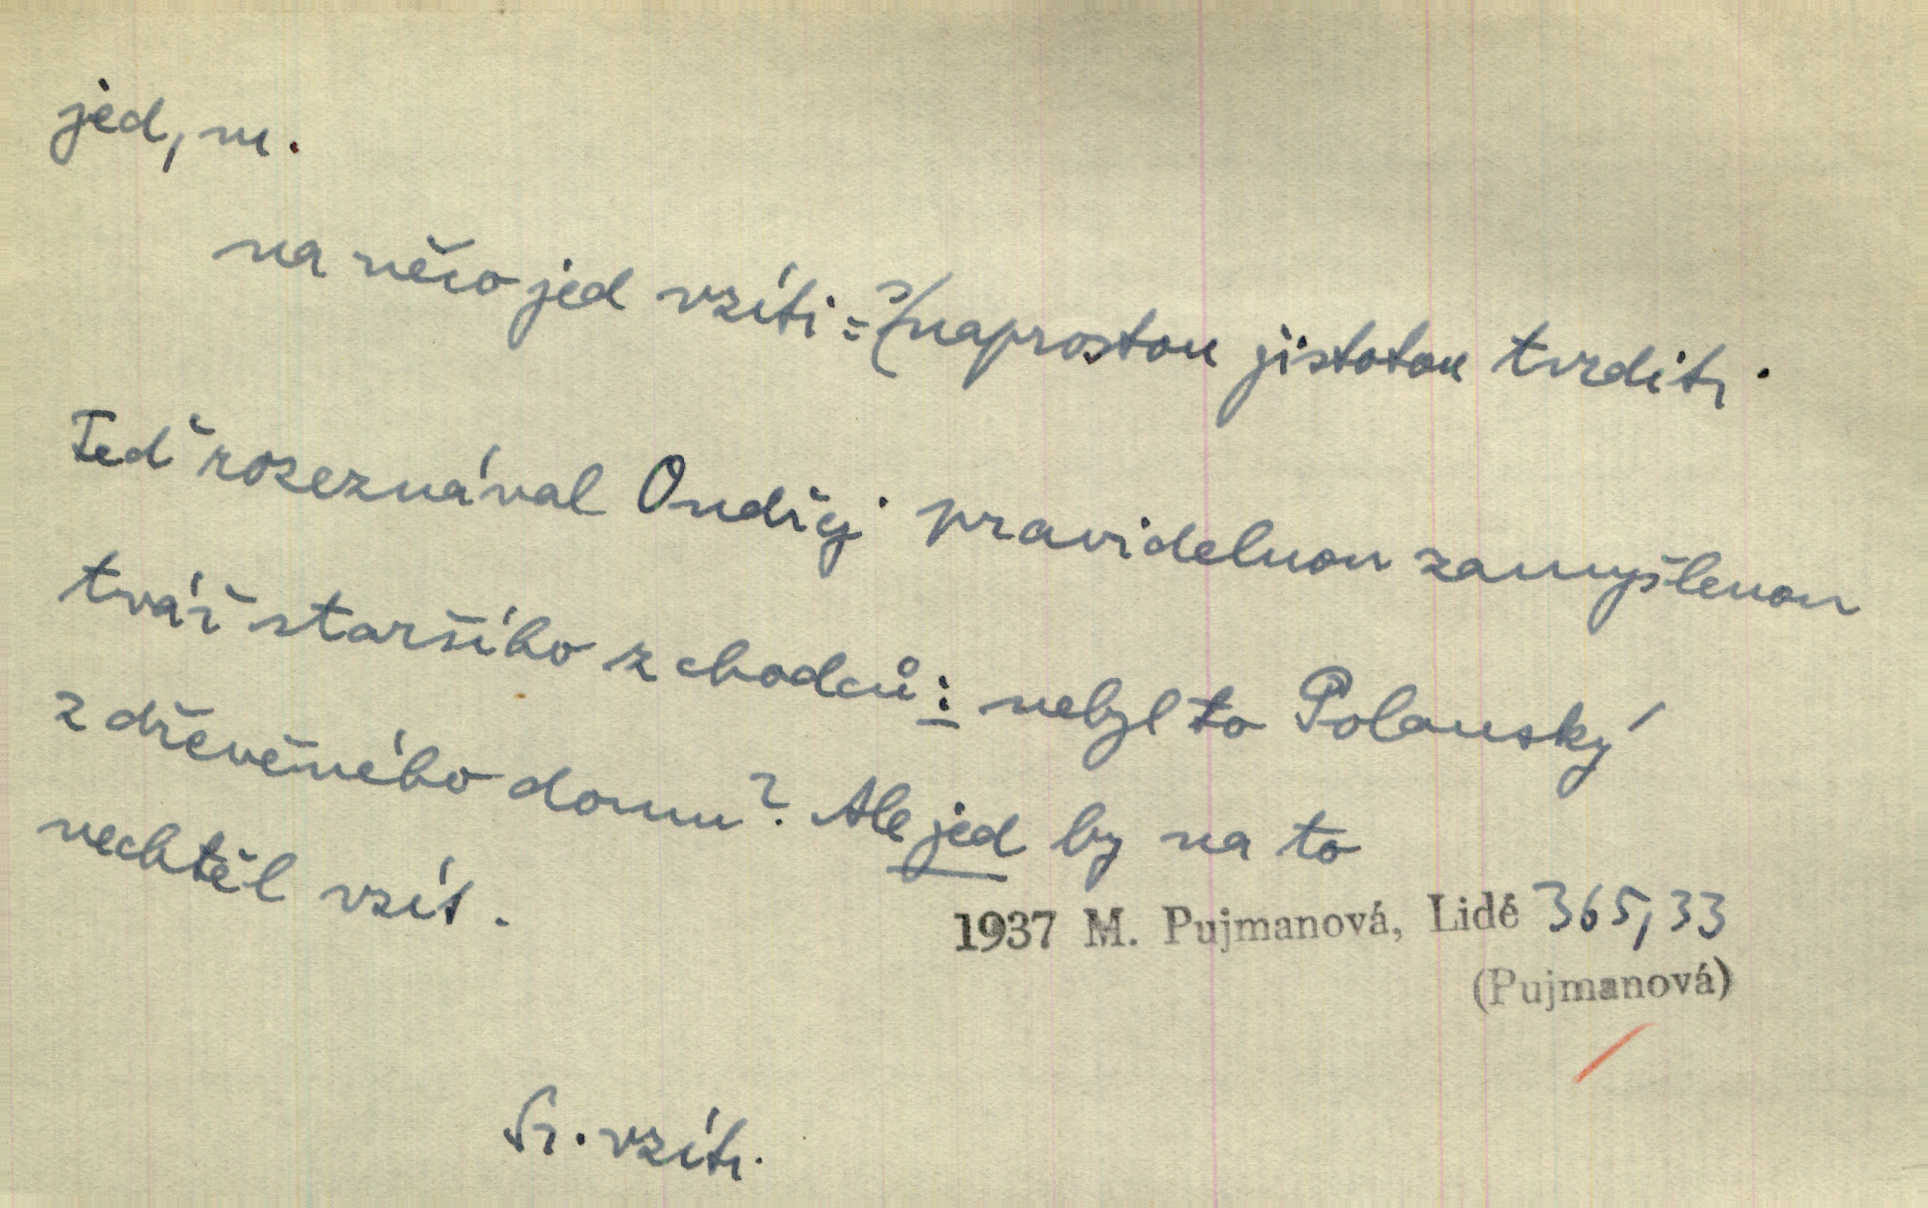 jed, m.
na něco jed vzíti = s naprostou jistotou tvrditi.
Teď rozeznával Ondřej pravidelnou zamyšlenou
tvář staršího z chodců: nebyl to Polanský
z dřevěného domu? Ale jed by na to
nechtěl vzít.
1937 M. Pujmanová, Lidé 365,33
(Pujmanová)
Sr. vzíti.